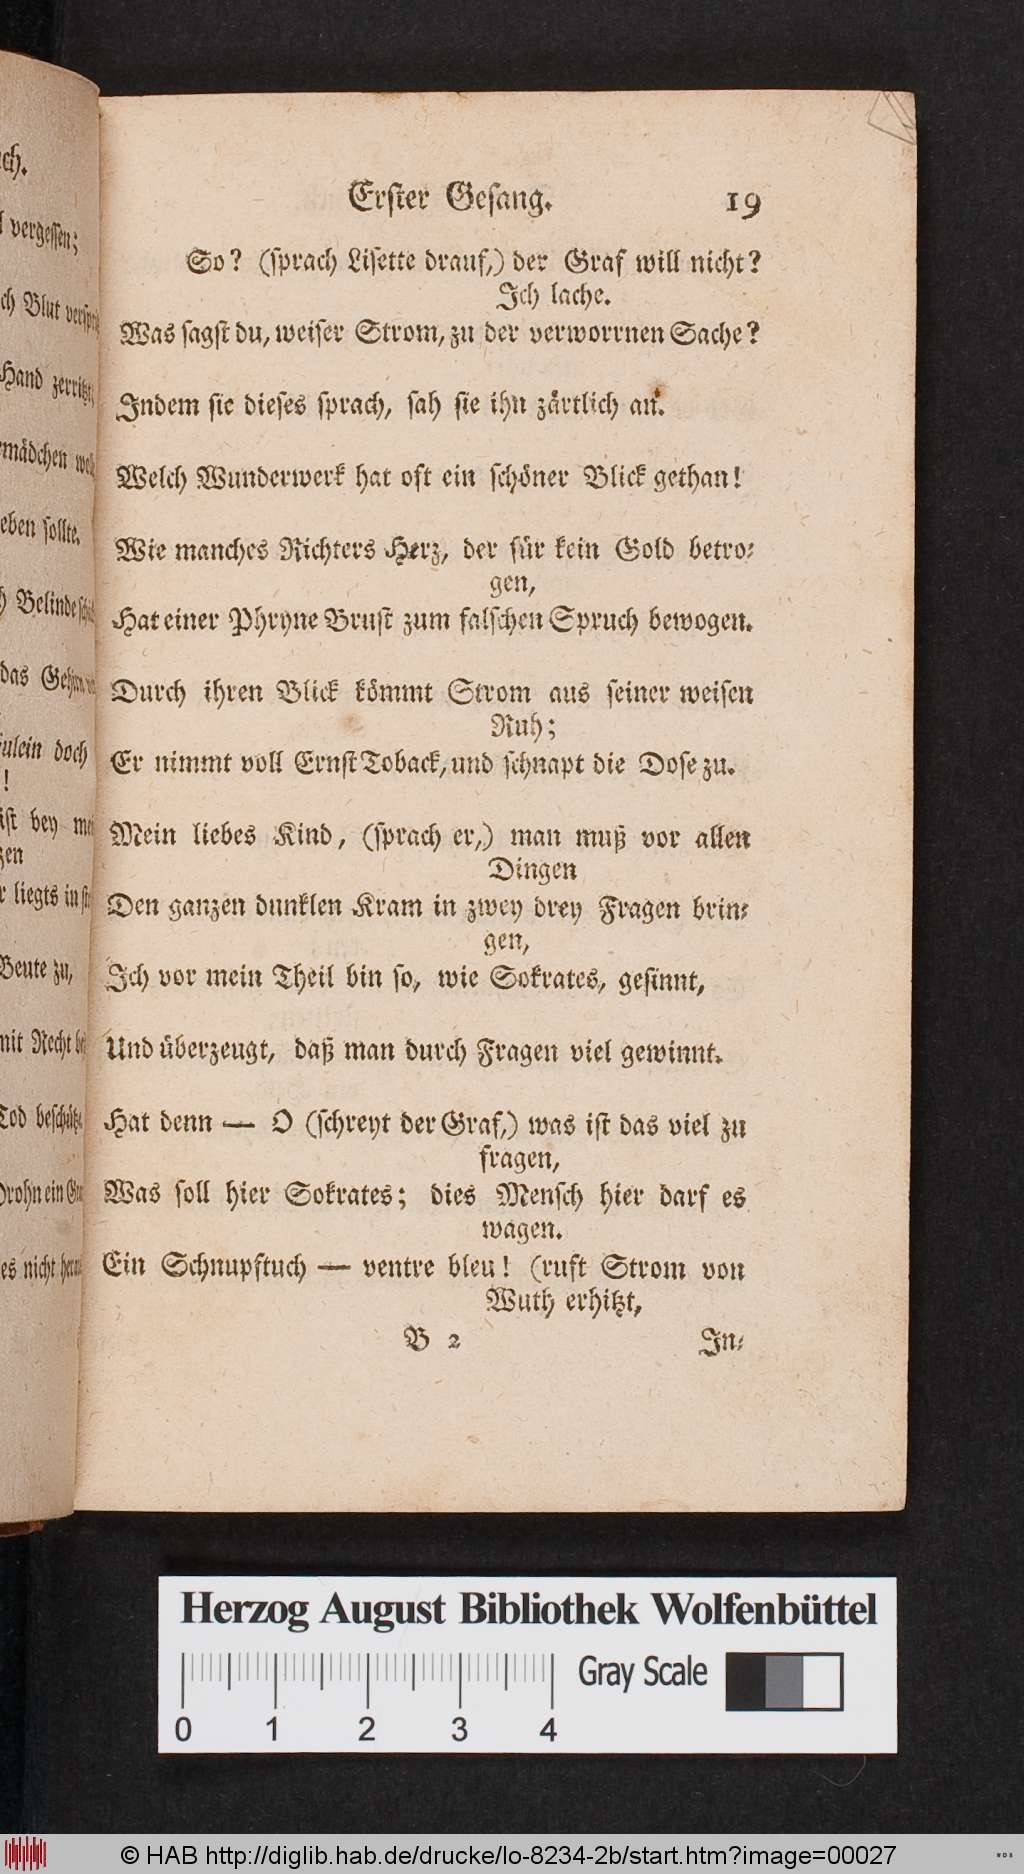 ch.
vergessen;
ch Blut
Hand zerritzt,
mädchen
eben sollte.
Belinde
das
ulein doch
!
ist bey
zen
r liegts in
Beute zu,
mit Recht
Tod
ein
es nicht
Erster Gesang. 19
So? (sprach Lisette drauf,) der Graf will nicht?
Ich lache.
Was sagst du, weiser Strom, zu der verworrnen Sache?
Indem sie dieses sprach, sah sie ihn zärtlich an.
Welch Wunderwerk hat oft ein schöner Blick gethan!
Wie manches Richters Herz, der für kein Gold betro-
gen,
Hat einer Phryne Brust zum falschen Spruch bewogen.
Durch ihren Blick kömmt Strom aus seiner weisen
Ruh;
Er nimmt voll Ernst Toback, und schnapt die Dose zu.
Mein liebes Kind, (sprach er,) man muß vor allen
Dingen
Den ganzen dunklen Kram in zwey drey Fragen brin-
gen,
Ich vor mein Theil bin so, wie Sokrates, gesinnt,
Und überzeugt, daß man durch Fragen viel gewinnt.
Hat denn — O (schreyt der Graf,) was ist das viel zu
fragen,
Was soll hier Sokrates; dies Mensch hier darf es
wagen.
Ein Schnupftuch — ventre bleu! (ruft Strom von
Wuth erhitzt,
B 2 In-
Herzog August Bibliothek Wolfenbüttel
Gray Scale
0 1 2 3 4
© HAB http://diglib.hab.de/drucke/lo-8234-2b/start.htm?image=00027